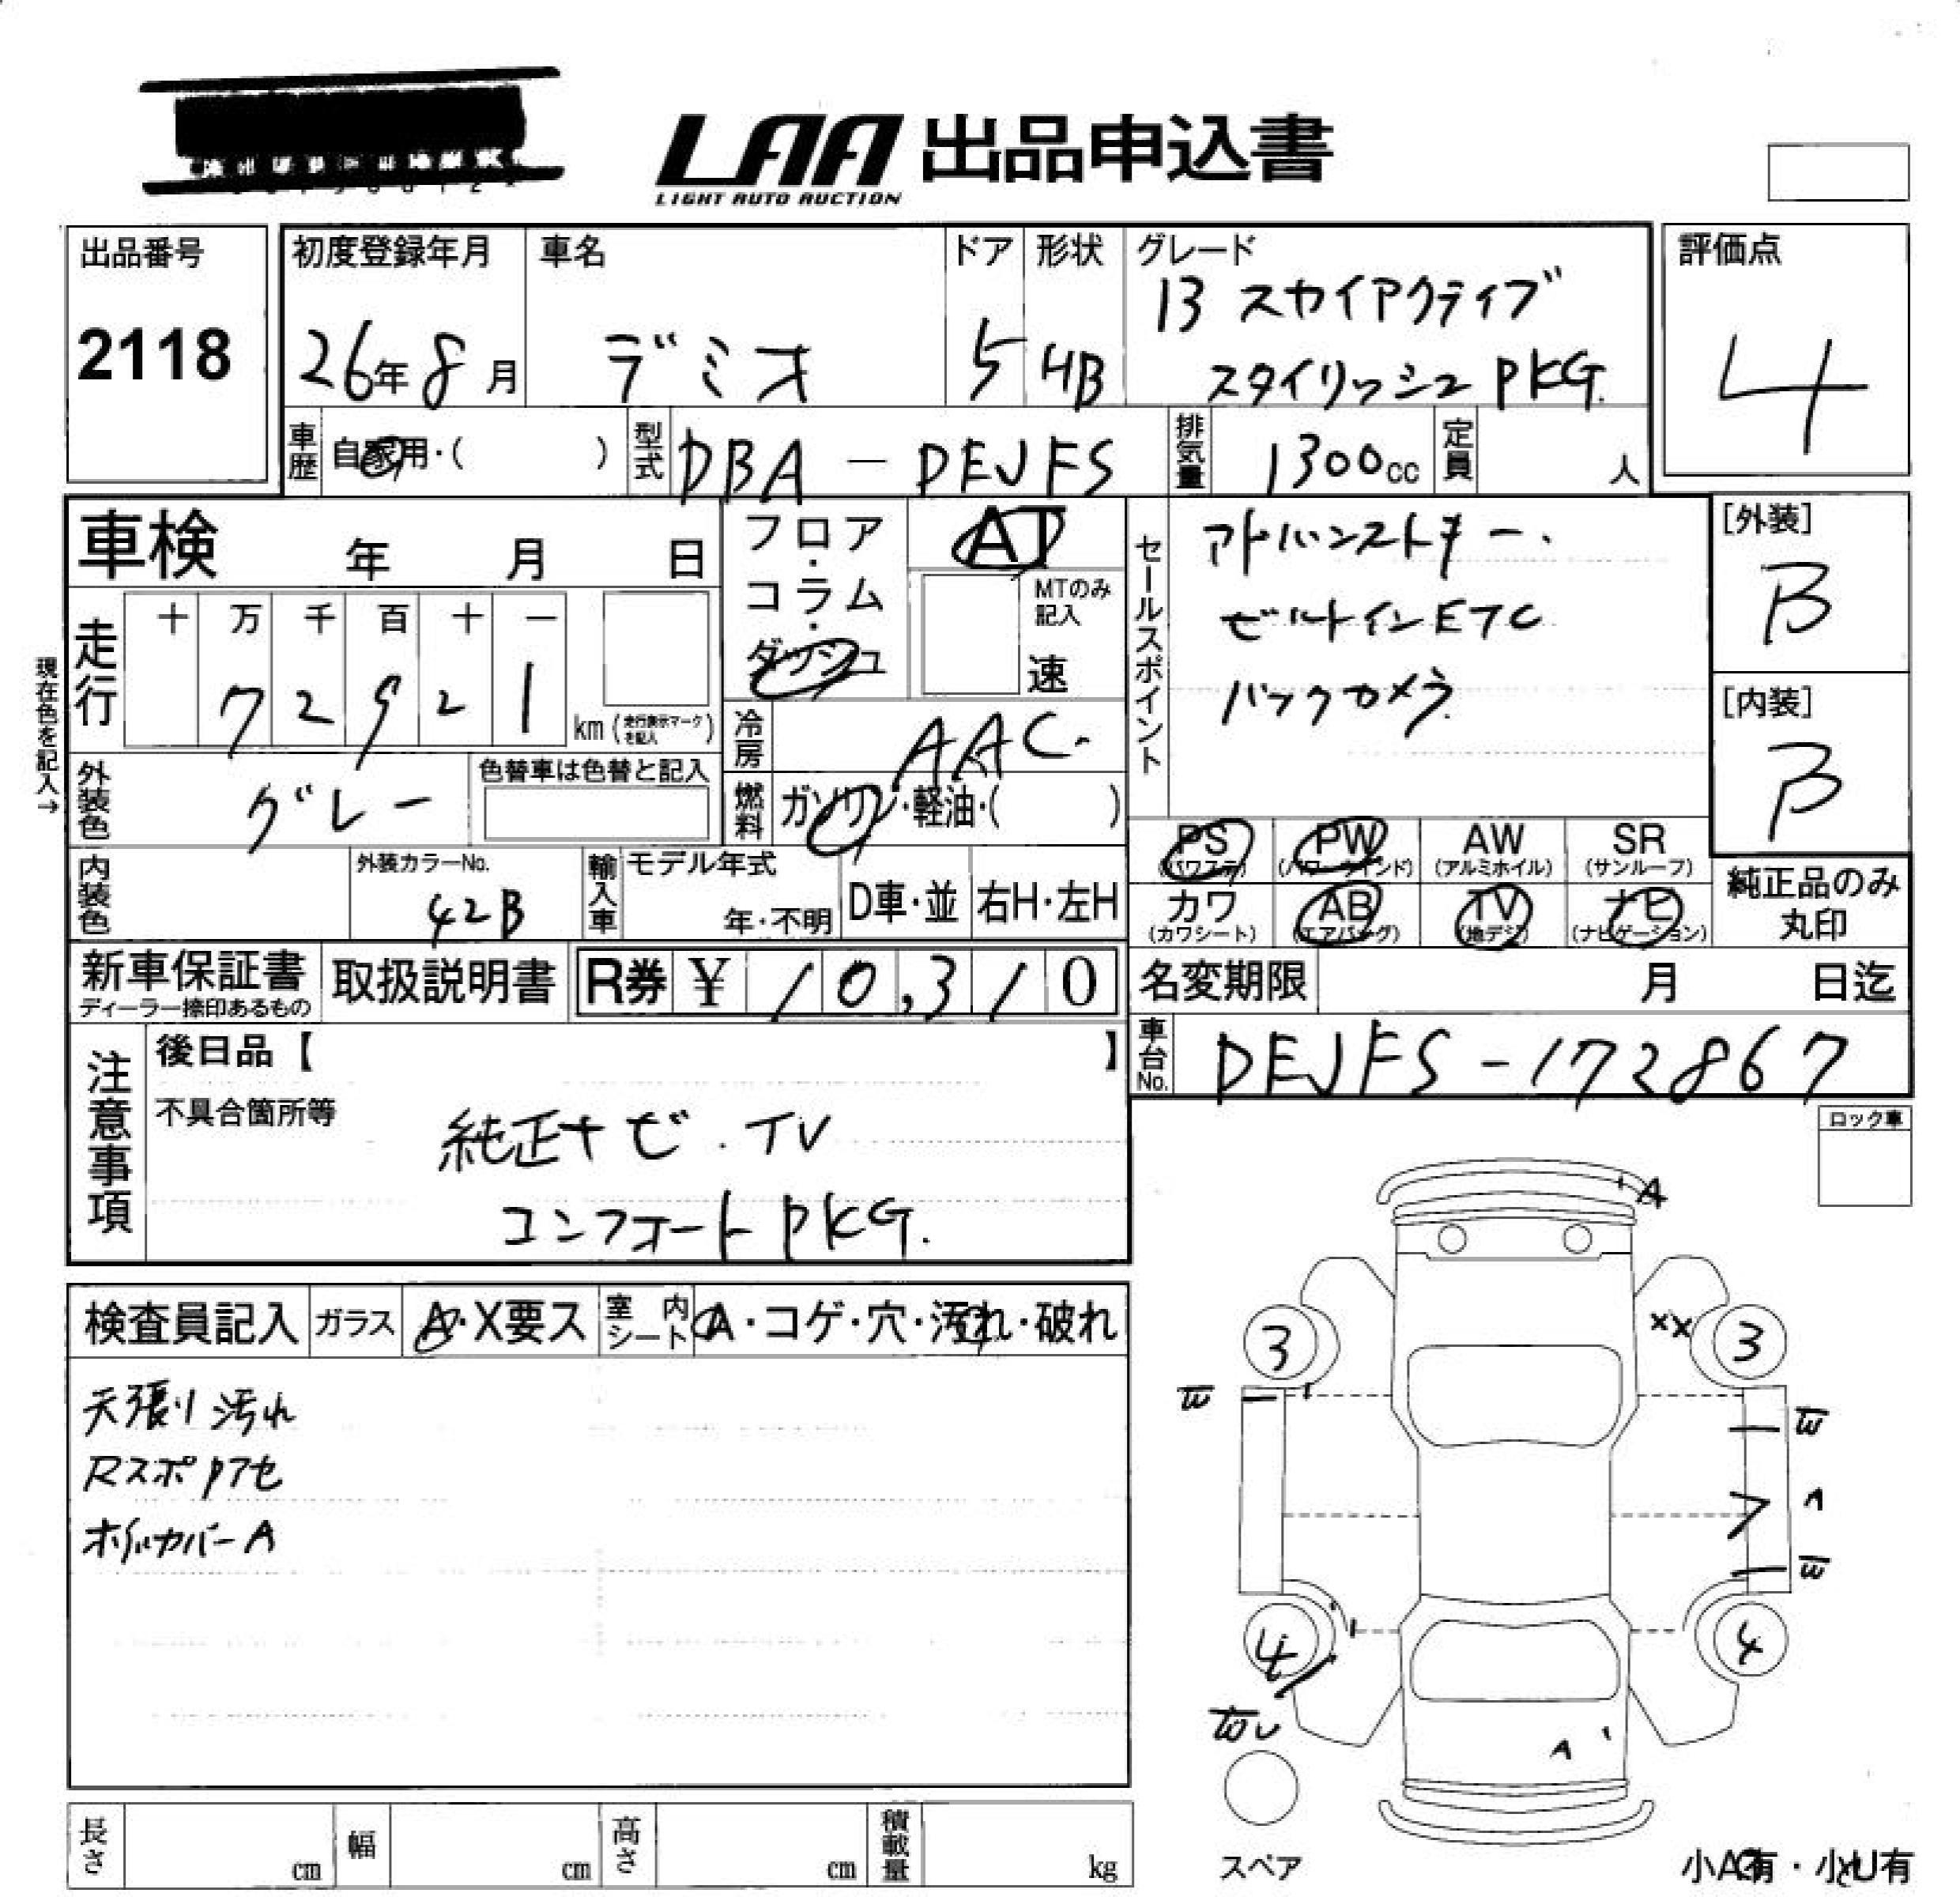 LAA 出品申込書
LIGHT AUTO AUCTION
出品番号
2118
初度登録年月
26年8月
車名
デミオ
ドア
5
形状
HB
グレード
13 スカイアクティブ
スタイリッシュ PKG.
評価点
4
車歴
自家用・( )
型式
DBA - DEJFS
排気量
1300cc
定員
人
車検 年 月 日
フロア・コラム・ダッシュ
AT
MTのみ記入
速
セールスポイント
アドバンストキー.
ビルトインETC
バックカメラ
[外装]
B
[内装]
B
現在色を記入→
走行
十 万 千 百 十 一
7 2 9 2 1
km (走行表示マークを記入)
冷房
AAC.
外装色
グレー
色替車は色替と記入
燃料
ガソリン・軽油・( )
PS
(パワステ)
PW
(パワーウインド)
AW
(アルミホイル)
SR
(サンルーフ)
カワ
(カワシート)
AB
(エアバーグ)
TV
(地デジ)
ナビ
(ナビゲーション)
純正品のみ
丸印
内装色
外装カラーNo.
42B
輸入車
モデル年式
年・不明
D車・並
右H・左H
新車保証書
ディーラー捺印あるもの
取扱説明書
R券 ¥ 10,310
名変期限 月 日迄
車台No.
DEJFS-172867
注意事項
後日品【 】
不具合箇所等
純正ナビ.TV
コンフォートPKG.
ロック車
検査員記入
ガラス
A・X要ス
室内シート
A・コゲ・穴・汚れ・破れ
天張り汚れ
ホイルカバーA
A
3
XX
3
4
4
A
スペア
長さ
cm
幅
cm
高さ
cm
積載量
kg
小A有・小U有